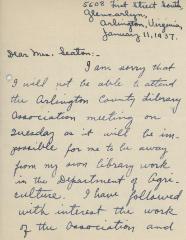 5608 First Street South,
Glencarlyn,
Arlington, Virginia,
January 11, 1937.
Dear Mrs. Seaton:-
I am sorry that
I will not be able to attend
the Arlington County Library
Association meeting on
Tuesday as it will be im-
possible for me to be away
from my own library work
in the Department of Agri-
culture. I have followed
with interest the work
of the Association and